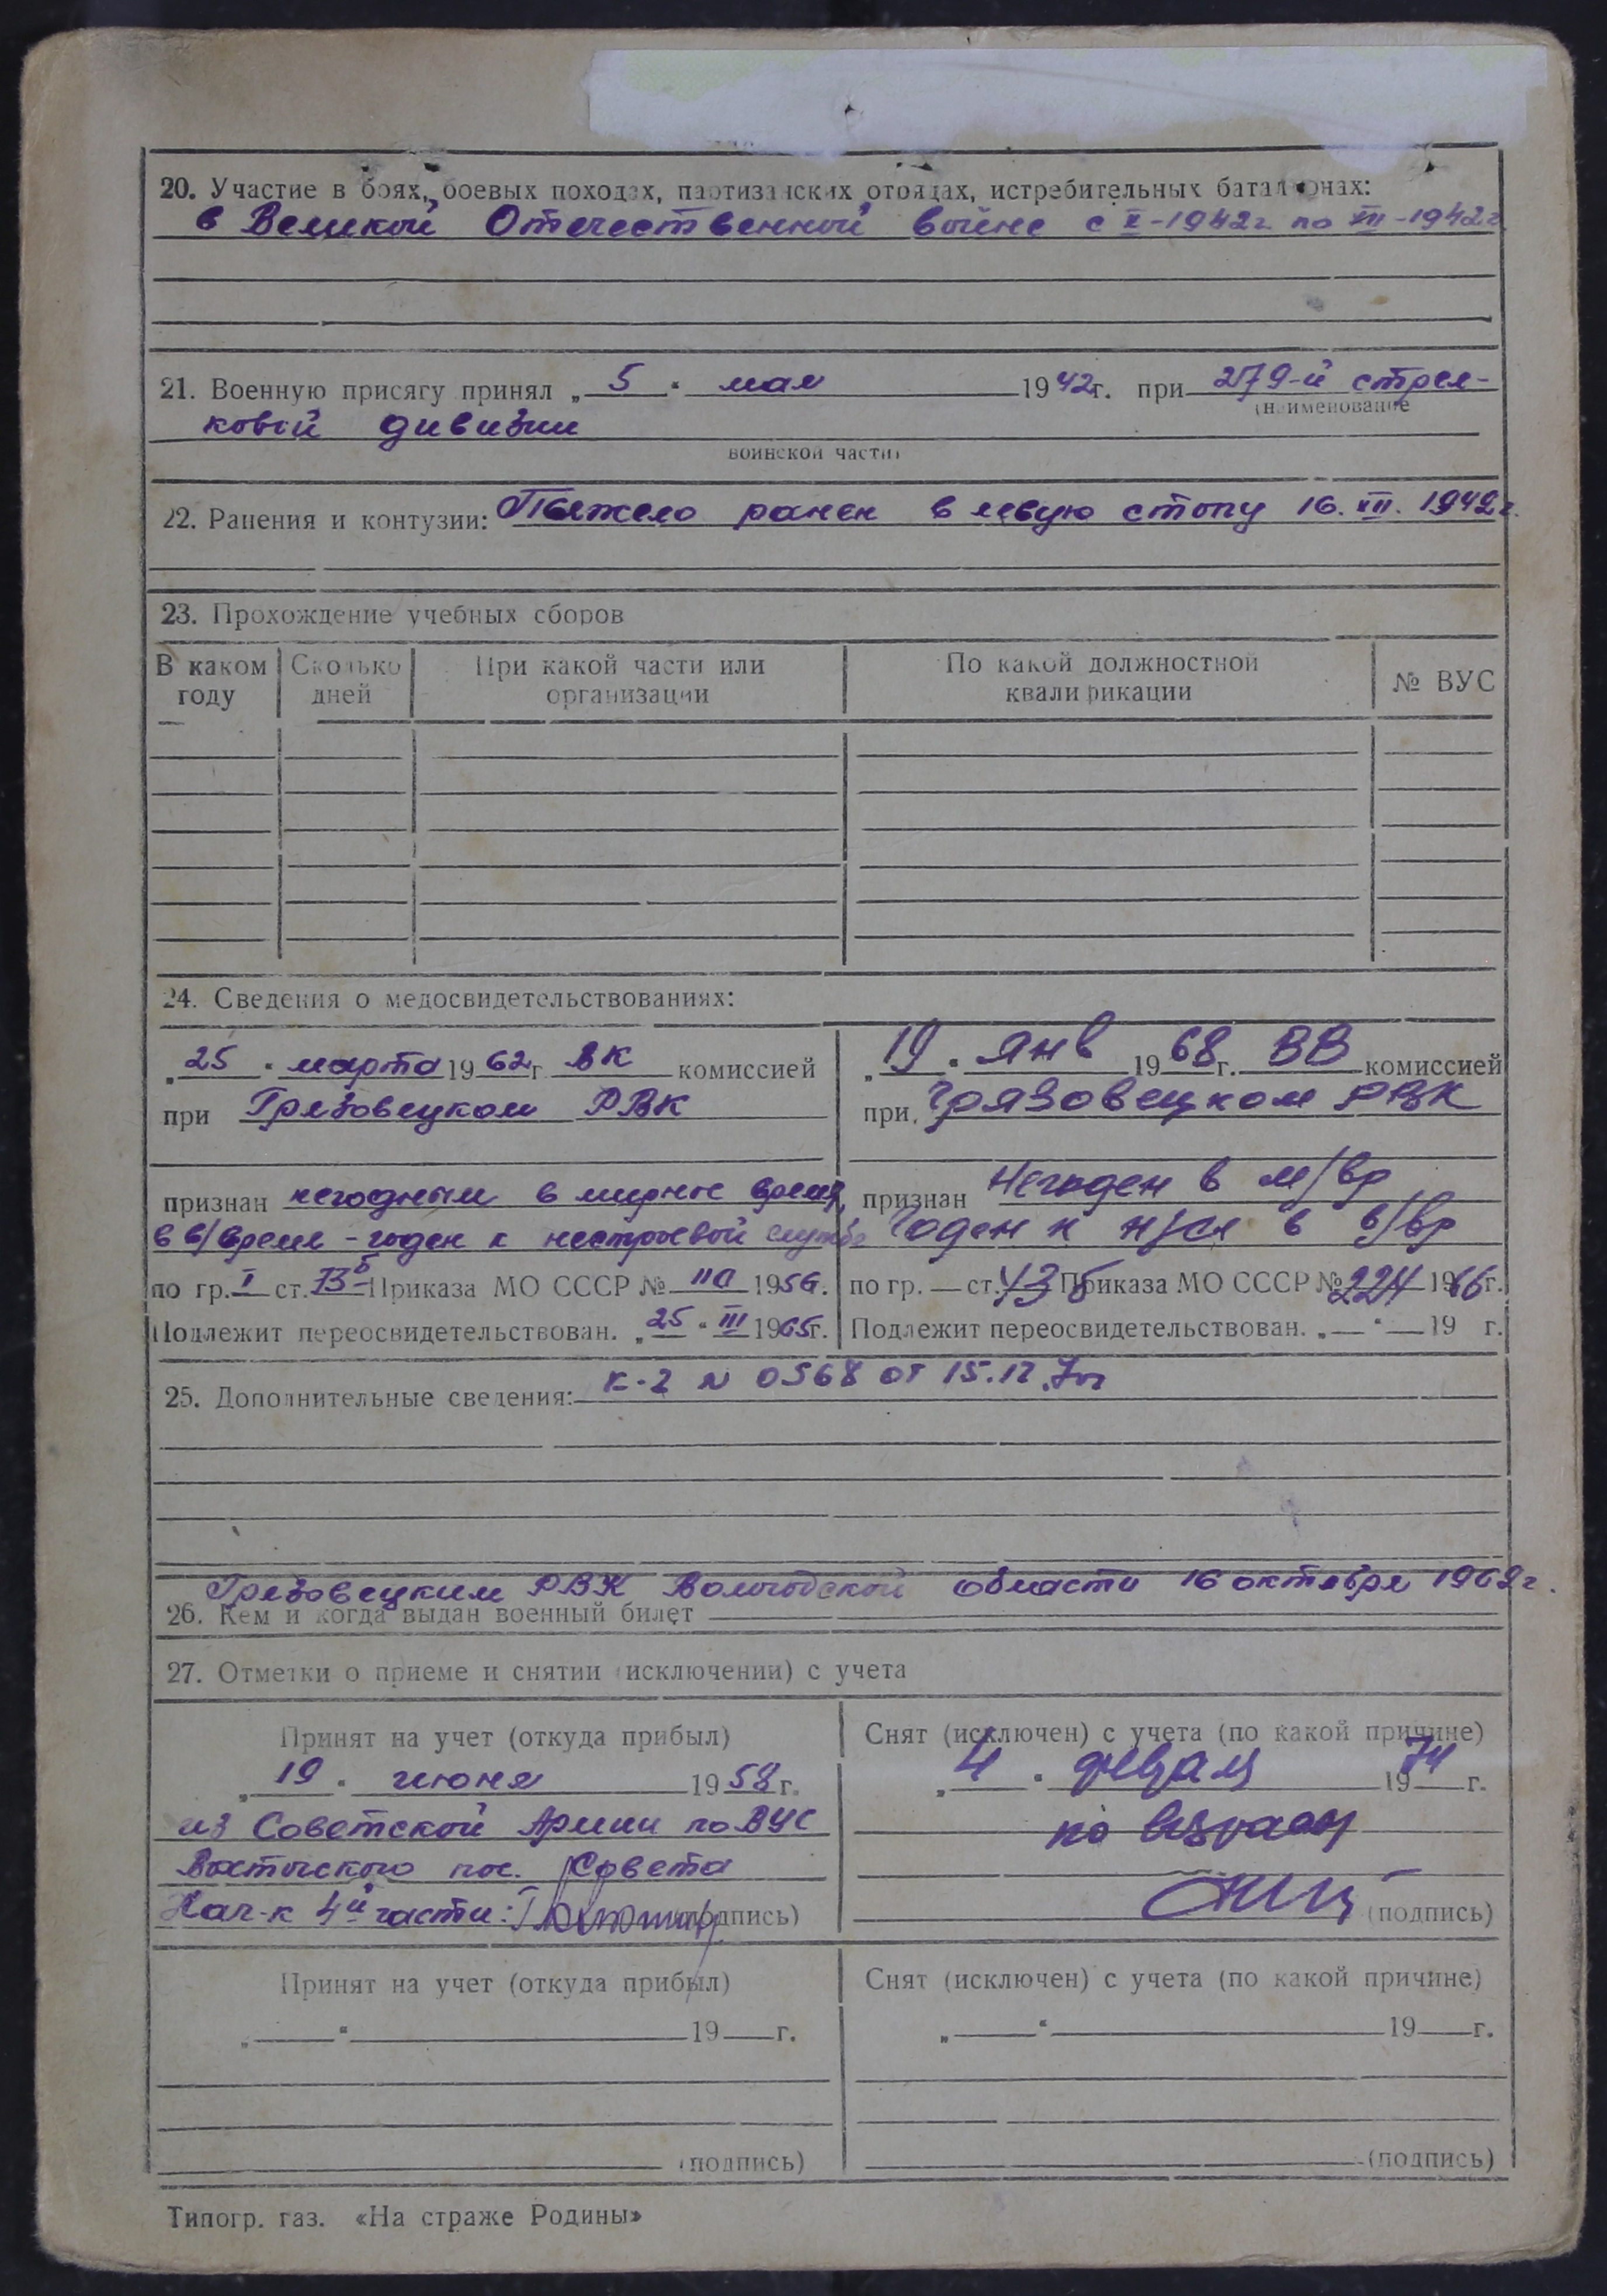 20. Участие в боях, боевых походах, партизанских отрядах, истребительных батальонах:
в Великой Отечественной войне с X-1942г. по XII-1942г
21. Военную присягу принял „ 5 “ мая 1942г. при 279-й стрел-
(наименование
ковой дивизии
воинской части)
22. Ранения и контузии: Тяжело ранен в левую стопу 16.XII.1942г.
23. Прохождение учебных сборов
В каком году | Сколько дней | При какой части или организации | По какой должностной квалификации | № ВУС
24. Сведения о медосвидетельствованиях:
„25“ марта 1962г. ВК комиссией
при Грязовецком РВК
признан негодным в мирное время,
в в/время - годен к нестроевой службе
по гр. I ст. 73б Приказа МО СССР № 1956.
Подлежит переосвидетельствован. „25“ III 1965г.
„19“ янв 1968г. ВВ комиссией
при Грязовецком РВК
признан Негоден в м/вр
Годен к н/сл в в/вр
по гр. — ст. 43 б Приказа МО СССР № 224 1966г.
Подлежит переосвидетельствован. „—“ — 19 г.
25. Дополнительные сведения: К-2 N 0568 от 15.12.
Грязовецким РВК Вологодской области 16 октября 1962г.
26. Кем и когда выдан военный билет
27. Отметки о приеме и снятии (исключении) с учета
Принят на учет (откуда прибыл)
„19“ июня 1958г.
из Советской Армии по ВУС
Вохтожского пос. Совета
Нач-к 4й части: (подпись)
Снят (исключен) с учета (по какой причине)
„4“ февраля 1974г.
по возрасту
(подпись)
Принят на учет (откуда прибыл)
„ “ 19 г.
(подпись)
Снят (исключен) с учета (по какой причине)
„ “ 19 г.
(подпись)
Типогр. газ. «На страже Родины»